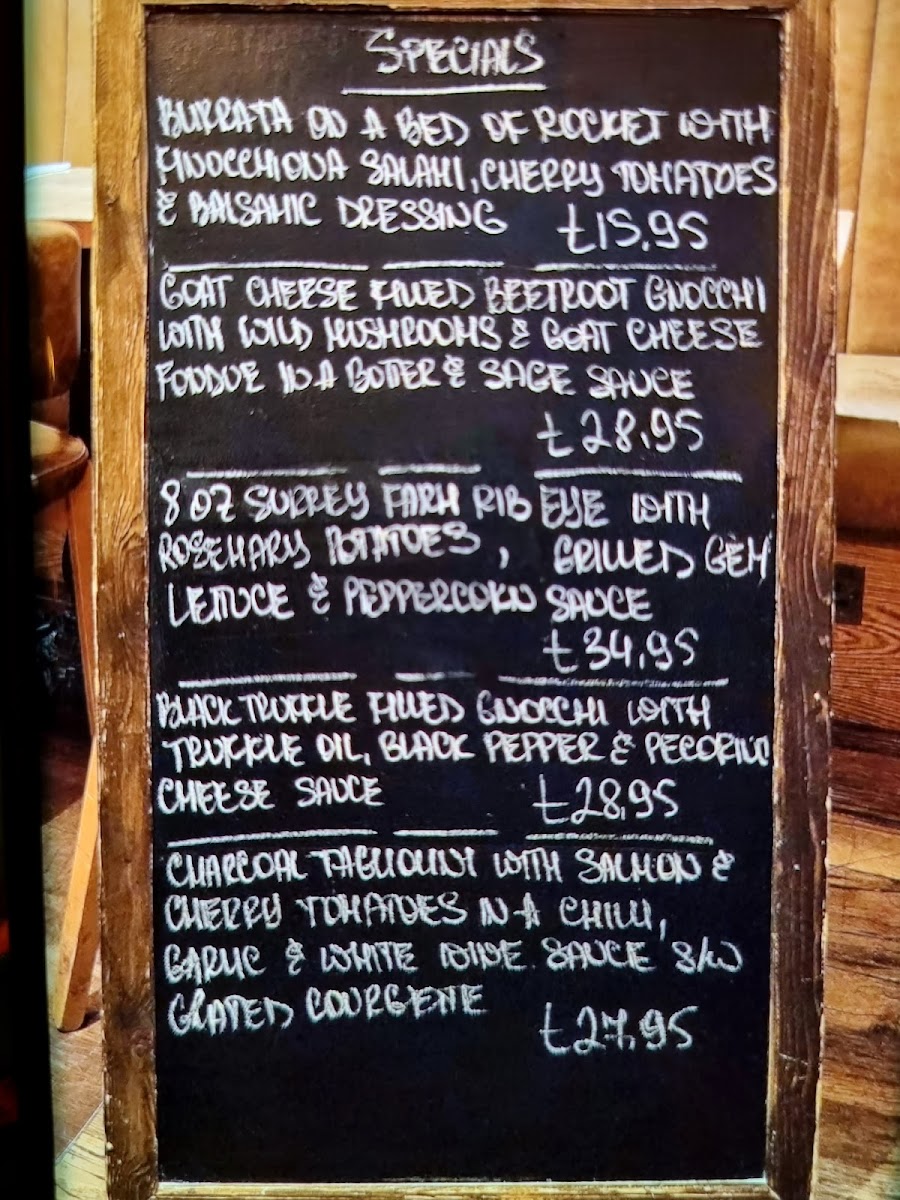 SPECIALS
BURRATA ON A BED OF ROCKET WITH
FINOCCHIONA SALAMI, CHERRY TOMATOES
& BALSAMIC DRESSING £15.95
GOAT CHEESE FILLED BEETROOT GNOCCHI
WITH WILD MUSHROOMS & GOAT CHEESE
FONDUE IN A BUTTER & SAGE SAUCE
£28.95
8 OZ SURREY FARM RIB EYE WITH
ROSEMARY POTATOES, GRILLED GEM
LETTUCE & PEPPERCORN SAUCE
£34.95
BLACK TRUFFLE FILLED GNOCCHI WITH
TRUFFLE OIL, BLACK PEPPER & PECORINO
CHEESE SAUCE £28.95
CHARCOAL TAGLIOLINI WITH SALMON &
CHERRY TOMATOES IN A CHILLI,
GARLIC & WHITE WINE SAUCE S/W
GRATED COURGETTE
£27.95